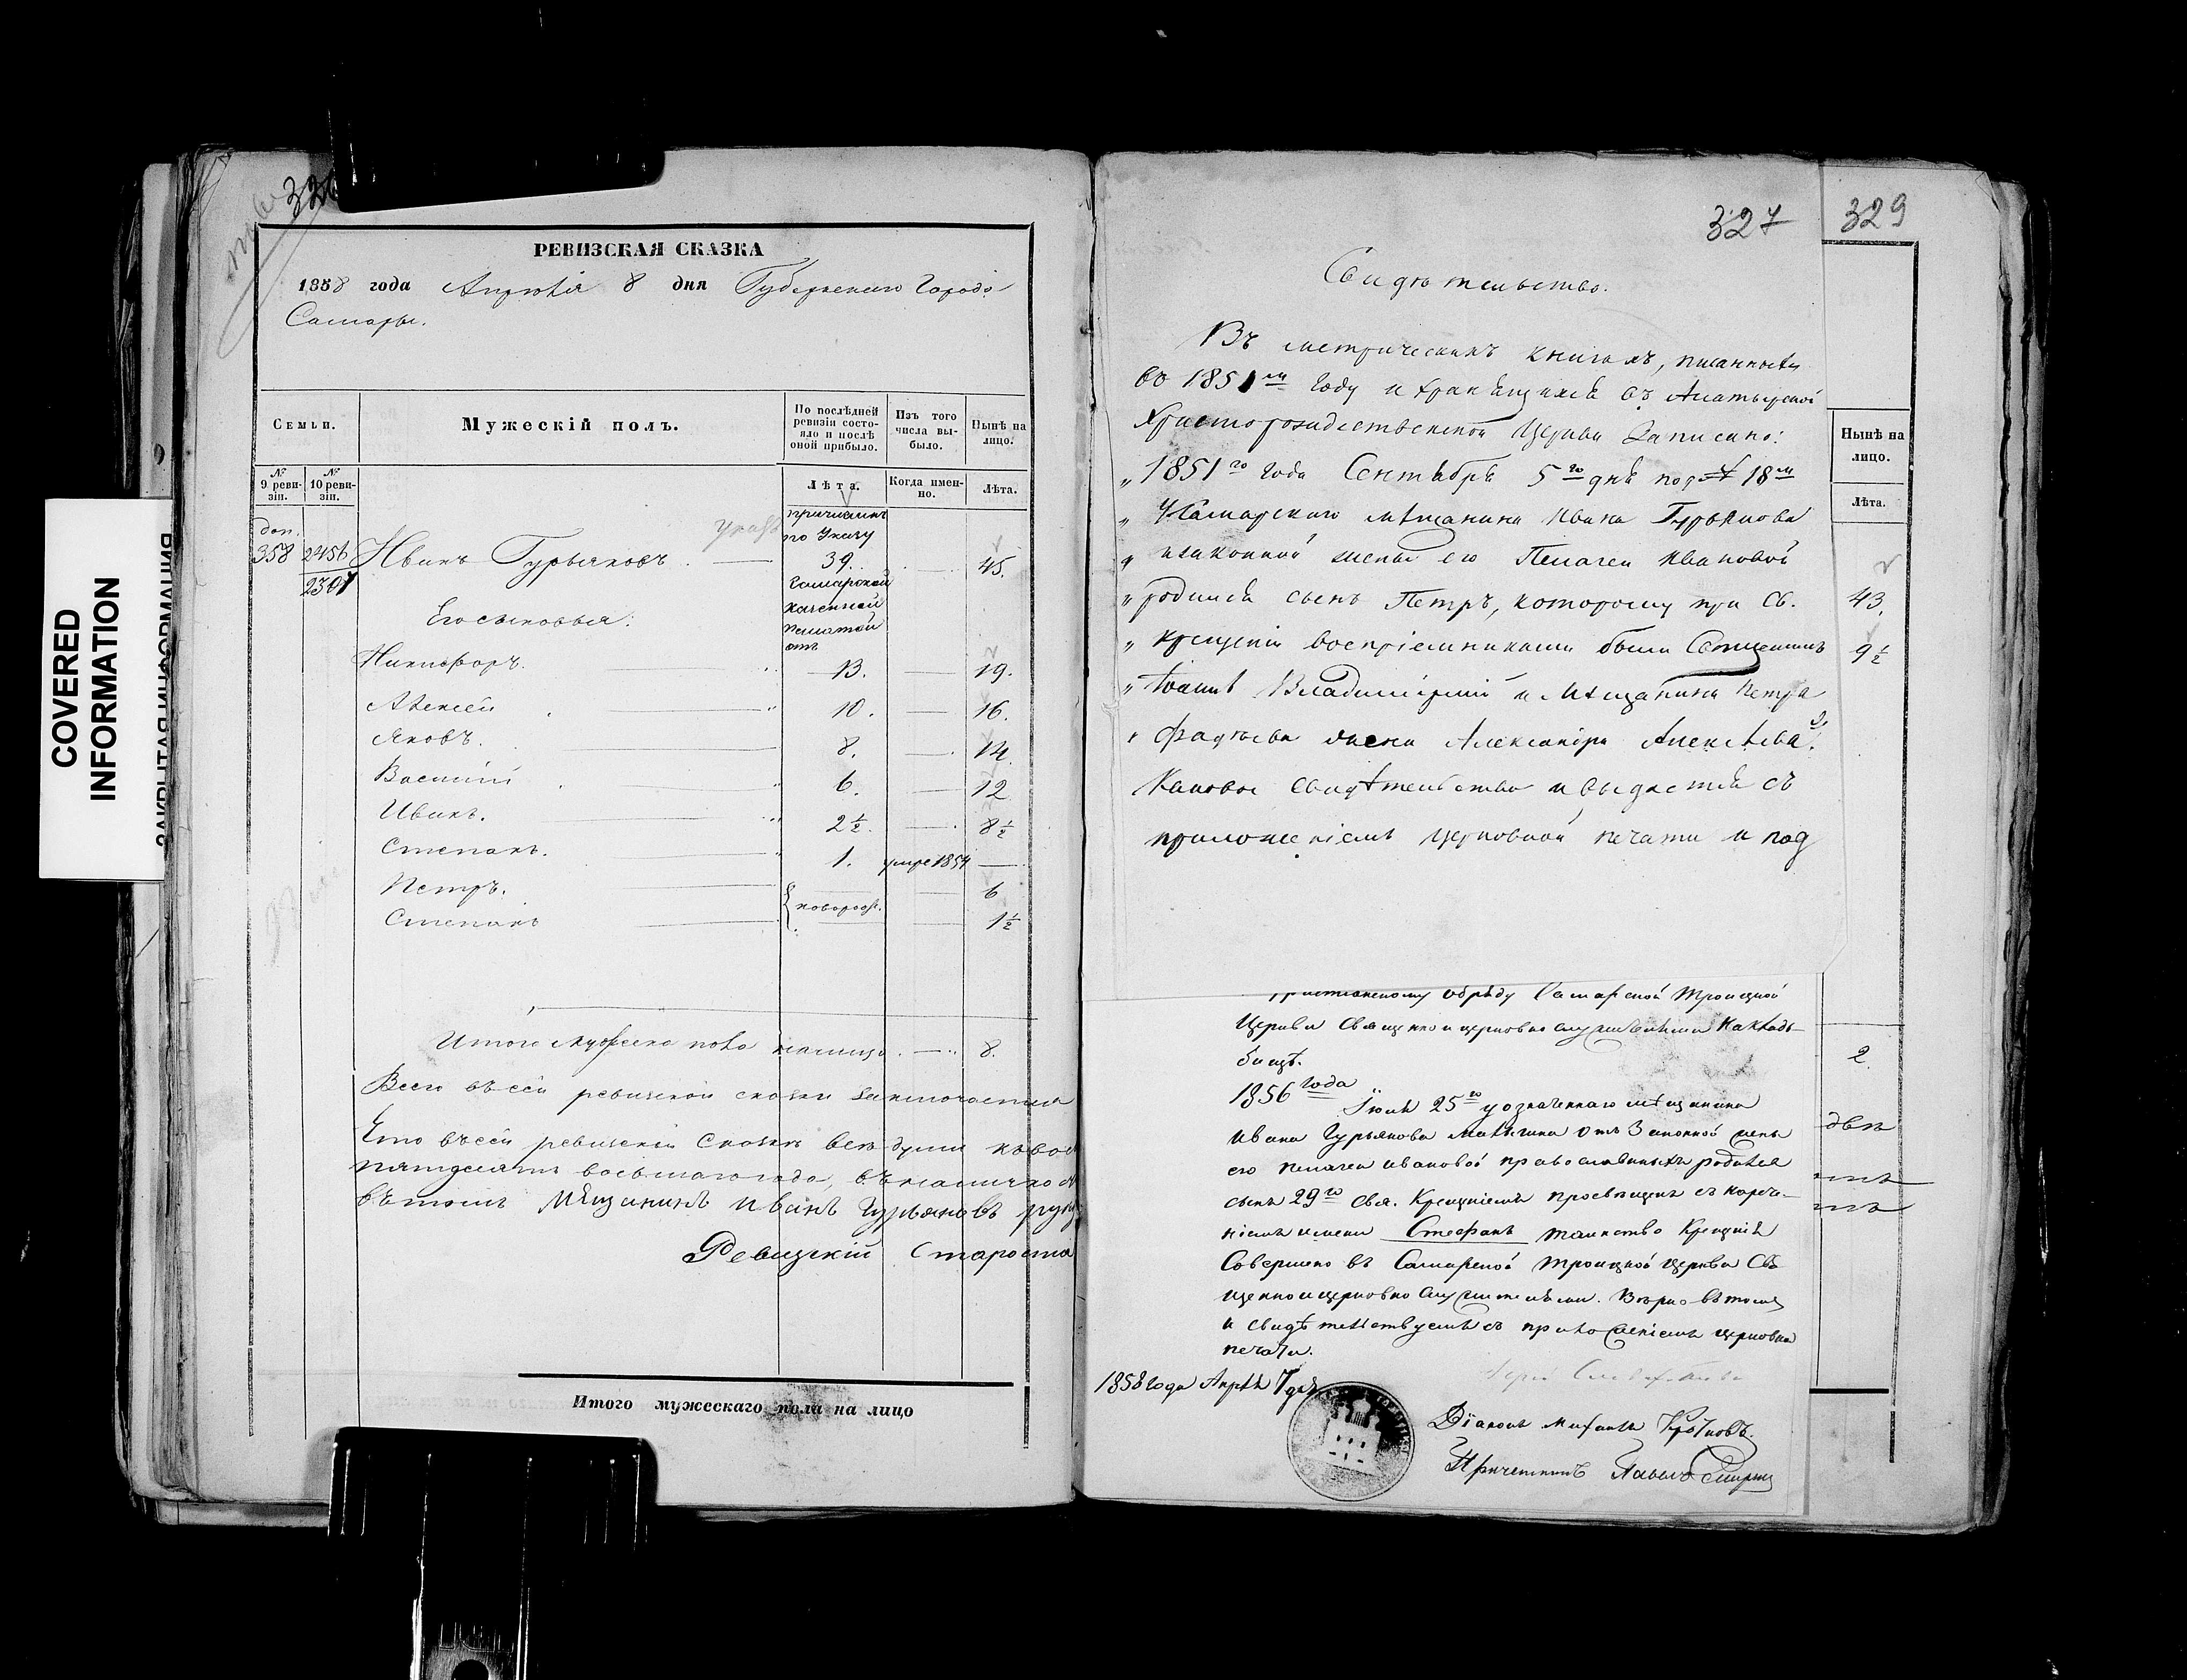 COVERED
INFORMATION
326
РЕВИЗСКАЯ СКАЗКА
1858 года Апрѣля 8 дня Губернскаго Города
Самары.
Семьи.
Мужескій полъ.
По послѣдней ревизіи состояло и послѣ оной прибыло.
Изъ того числа выбыло.
Нынѣ на лицо.
№ 9 ревизіи.
№ 10 ревизіи.
Лѣта.
Когда именно.
Лѣта.
доп. 358
2456
2301
Иванъ Гурьяновъ.
причисленъ
по Указу
39.
45.
Самарской
казенной
палаты
отъ
Его сыновья:
Никифоръ. 13. 19.
Алексей 10. 16.
Яковъ. 8. 14.
Василій 6. 12
Иванъ. 2½. 8½
Степанъ. 1. умре 1854
Петръ. новорож. 6
Степанъ 1½
Итого мужеска пола налицо 8.
Всего въ сей ревизской сказки заключается
Что въ сей ревизской сказкѣ всѣ души
пятдесятъ восьмаго года, въ наличности
въ томъ Мѣщанинъ Иванъ Гурьяновъ
Ревизскій Староста
Итого мужескаго пола на лицо
327
329
Свидѣтельство.
Въ метрическихъ книгахъ, писанныхъ
въ 1851м году и хранящихся въ Алатырской
Христорождественской Церкви Записано:
„ 1851го года Сентября 5го дня под № 18м
„ У Самарскаго мѣщанина Ивана Гурьянова
„ и законной жены его Пелагеи Ивановой
„ родился сынъ Петръ, которому при Св.
„ крещеніи воспріемниками были Священникъ
„ Іоаннъ Владимірскій и Мѣщанина Петра
„ Фадѣева жена Александра Алексѣева".
Каковое свидѣтельство и выдается съ
приложеніемъ Церковной печати и под
Нынѣ на лицо.
Лѣта.
43.
9½
христіанскому обряду Самарской Троицкой
Церкви Священно и церковно служителями На клад-
бищѣ.
1856 года
Іюля 25го у означеннаго мѣщанина
Ивана Гурьянова от Законной жены
его Пелагеи Ивановой православныхъ родился
сынъ 29го Свя. Крещеніемъ просвѣщенъ съ нарече-
ніемъ имени Стефанъ таинство Крещенія
Совершено въ Самарской Троицкой Церкви Свя
щенно и церковно служителями. Вѣрно въ томъ
и свидѣтельствуемъ съ приложеніемъ церковной
печати.
1858 года Апрѣля 7 дня
Діаконъ Михаилъ
Причетникъ Павелъ Смирнов
2.
двѣ